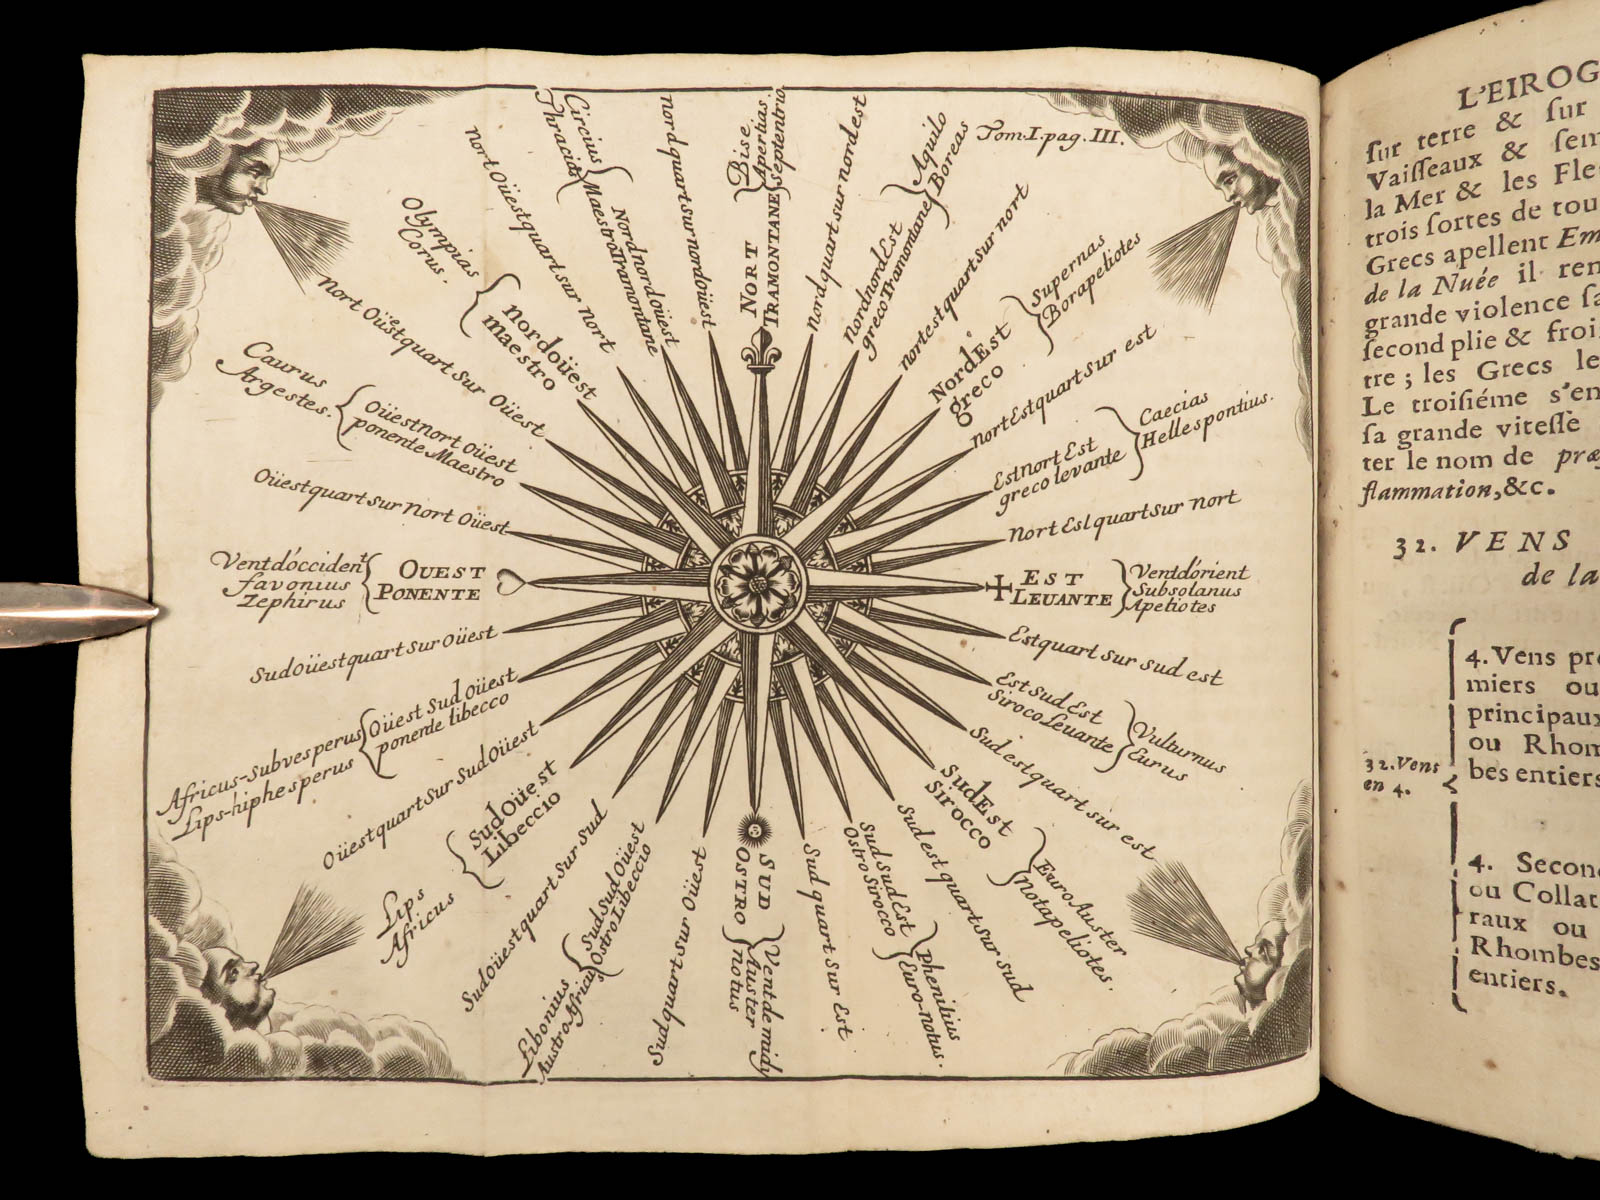 Tom. I. pag. III.
Bise
Apertias.
Septentrio
NORT
TRAMONTANE
nord quart sur nord est
nord nord Est
greco Tramontane
Aquilo
Boreas
nort est quart sur nort
Nord Est
greco
Supernas
Borapeliotes
nort Est quart sur est
Est nort Est
greco levante
Caecias
Hellespontius.
Nort Est quart sur nort
EST
LEUANTE
Vent d'orient
Subsolanus
Apeliotes
Est quart sur sud est
Est sud Est
Siroco Leuante
Vulturnus
Eurus
Sud est quart sur est
Sud Est
Sirocco
Euro Auster
notapeliotes.
Sud est quart sur sud
Sud Sud Est
Ostro Sirocco
phenilius
Euro-notus.
Sud quart sur Est
SUD
OSTRO
Vent de midy
Auster
notus
Sud quart sur Oüest
Sud Sud Oüest
Ostro Libeccio
Libonius
Austro Africus
Sud Oüest quart sur Sud
Sud Oüest
Libeccio
Lips
Africus
Oüest quart sur Sud Oüest
Oüest Sud Oüest
ponente libecco
Africus-Subvesperus
Lips-hiphesperus
Sud Oüest quart sur Oüest
OUEST
PONENTE
Vent d'occident
favonius
Zephirus
Oüest quart sur Nort Oüest
Oüest nort Oüest
ponente Maestro
Caurus
Argestes.
Nort Oüest quart sur Oüest
nord oüest
maestro
Olympias
Corus.
nort Oüest quart sur nort
Nord nord oüest
Maestro Tramontane
Circius
Thracias
nord quart sur nord oüest
L'EIROG
sur terre & sur
Vaisseaux & sem
la Mer & les Fle
trois sortes de tou
Grecs apellent Em
de la Nuée il ren
grande violence sa
second plie & froi
tre ; les Grecs le
Le troisiéme s'en
sa grande vitesse
ter le nom de præ
flammation, &c.
32. VENS
de la
32. Vens
en 4.
4. Vens pre
miers ou
principaux
ou Rhom
bes entiers
4. Secon
ou Collat
raux ou
Rhombes
entiers.